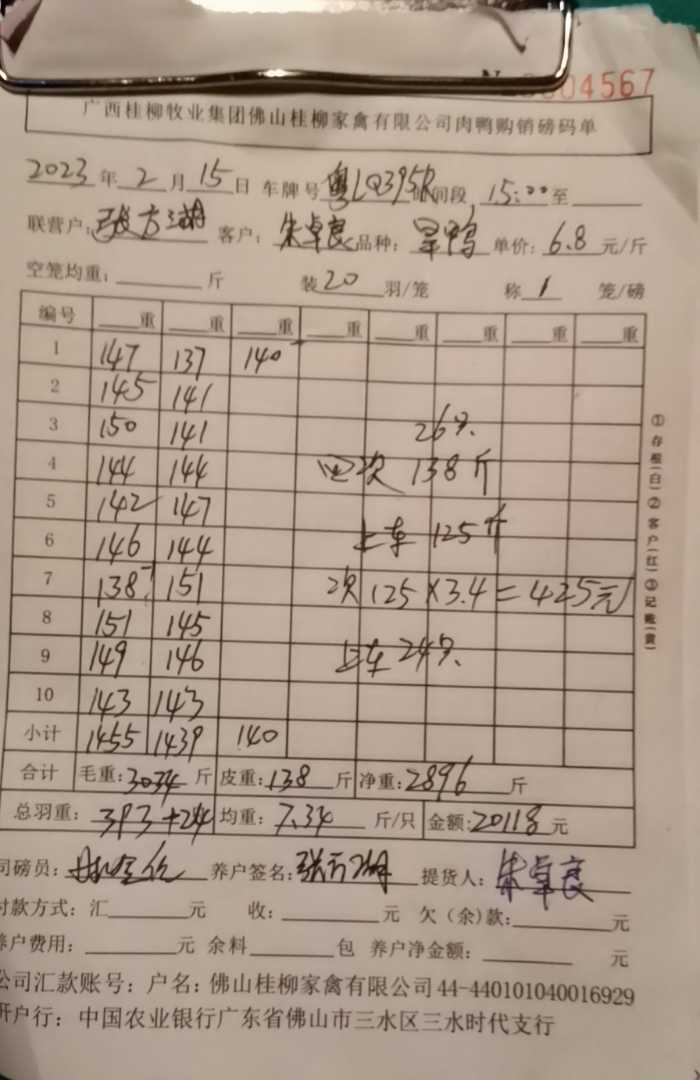 004567
广西桂柳牧业集团佛山桂柳家禽有限公司肉鸭购销磅码单
2023年2月15日 车牌号粤LQ395R 间段 15:00至
联营户: 张方湖 客户: 朱卓良 品种: 旱鸭 单价: 6.8元/斤
空笼均重: 斤 装20羽/笼 称1笼/磅
编号 重 重 重 重 重 重 重 重
1 147 137 140
2 145 141
3 150 141 26只
4 144 144 四次 138斤
5 142 147
6 146 144 上车 125斤
7 138 151 次 125×3.4=425元
8 151 145
9 149 146 上车 24只
10 143 143
小计 1455 1439 140
合计 毛重: 3034斤 皮重: 138斤 净重: 2896斤
总羽重: 393+24 均重: 7.34斤/只 金额: 20118元
司磅员: 养户签名: 张方湖 提货人: 朱卓良
付款方式: 汇 元 收: 元 欠(余)款: 元
养户费用: 元 余料 包 养户净金额: 元
公司汇款账号: 户名: 佛山桂柳家禽有限公司 44-440101040016929
开户行: 中国农业银行广东省佛山市三水区三水时代支行
①存根(白)②客户(红)③记账(黄)